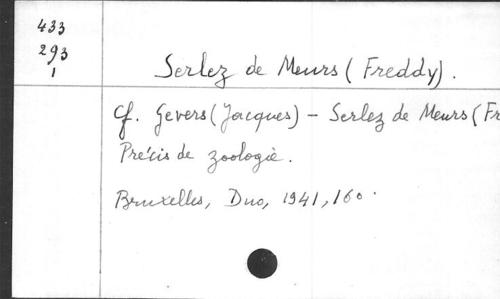 433
293
1
Serlez de Meurs (Freddy).
Cf. Gevers (Jacques) - Serlez de Meurs (Fr
Précis de zoologie.
Bruxelles, Duo, 1941, 160.